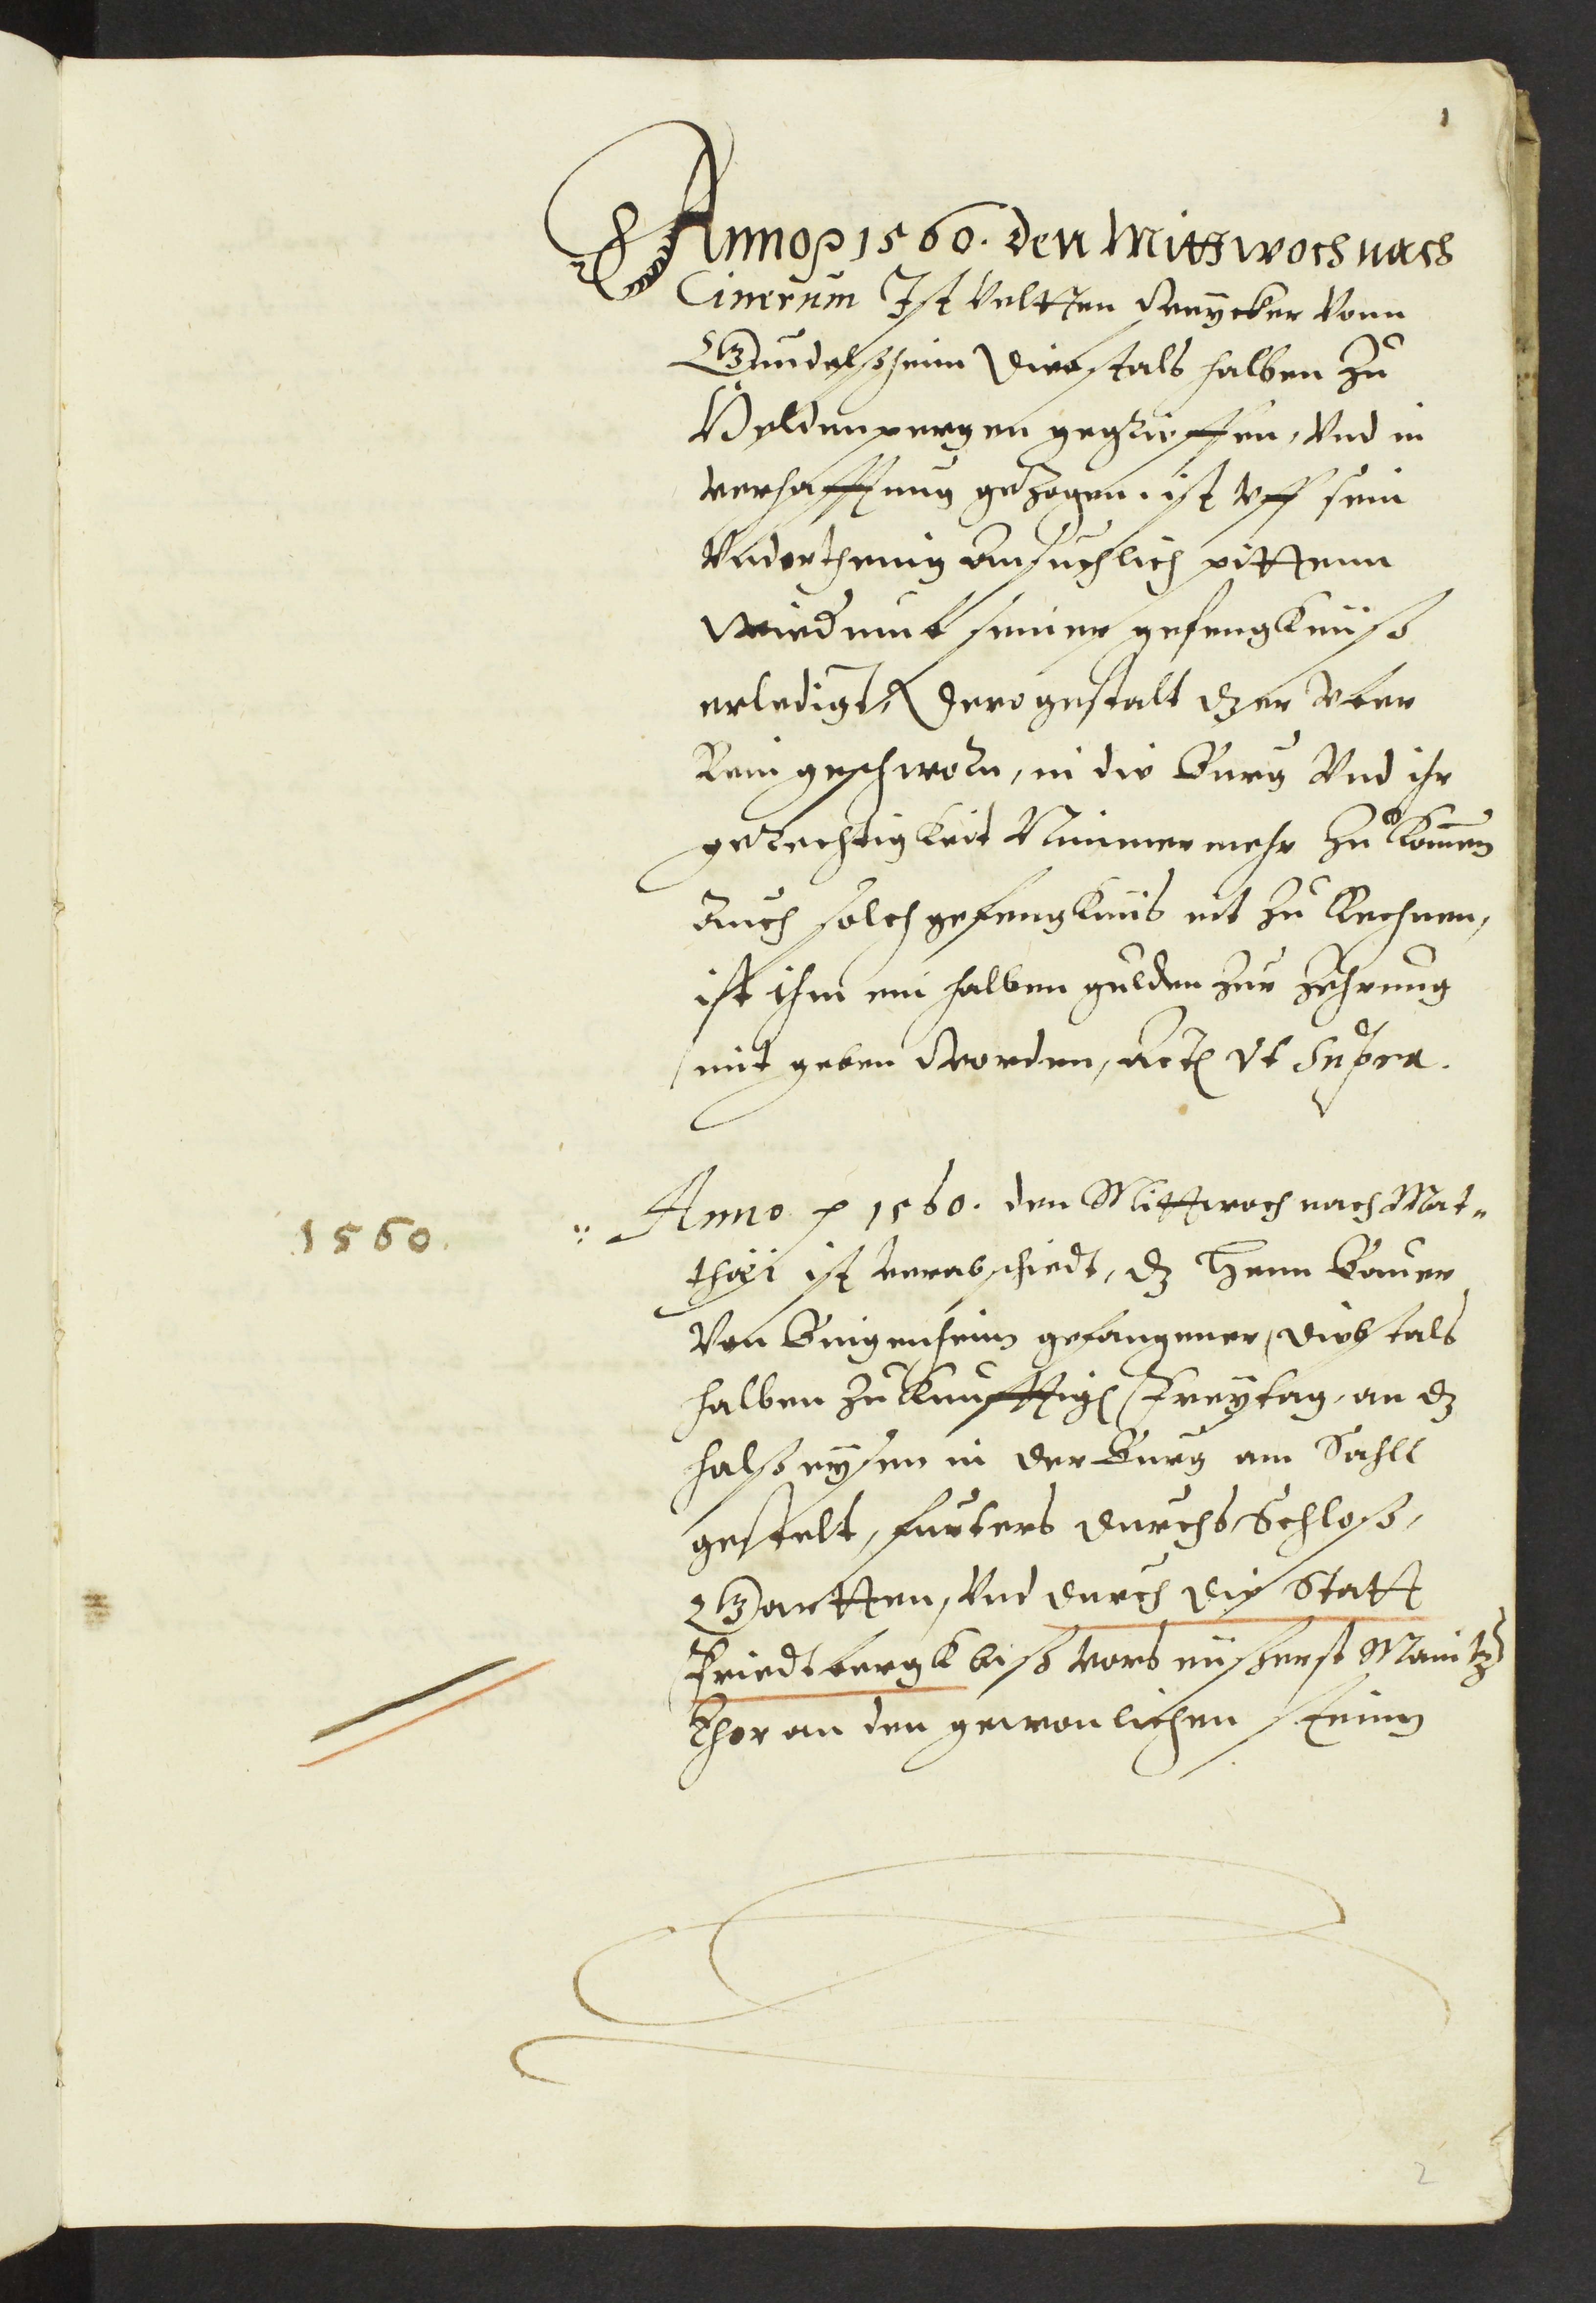 1
Anno p 1560. den Mittwoch nach
Cinerum Ist Veltten Dreycker vonn
Gundelßheim Diebstals halben zu
Heldenpergen gegrieffen, vnd in
verhafftung gezogen. ist vff sein
vnderthenig ansuchlich pittenn
wiederumb seiner gefengknüß
erledigt, Dero gestalt dz er vber
Rein geschworn, in die Burg vnd ihr
gerechtigkeit Nimmermehr zu kommen
auch solch gefengknüs nit zu Rechnen,
ist ihm ein halben gulden zur Zehrung
mit geben worden, Act vt Supra.
1560.
Anno p 1560. den Mittwoch nach Mat-
thäi ist verabschiedt, dz Henn Bauer
von Bingenheim gefangener, Diebstals
halben zu Kunfftig Freytag, an dz
halßeysen in der Burg am Sahll
gestelt, furters durchs Schloß,
Gartten, vnd durch die Statt
Friedtbergk biß vors eüßerst Maintz
Thor an den gewonlichen steinn
2